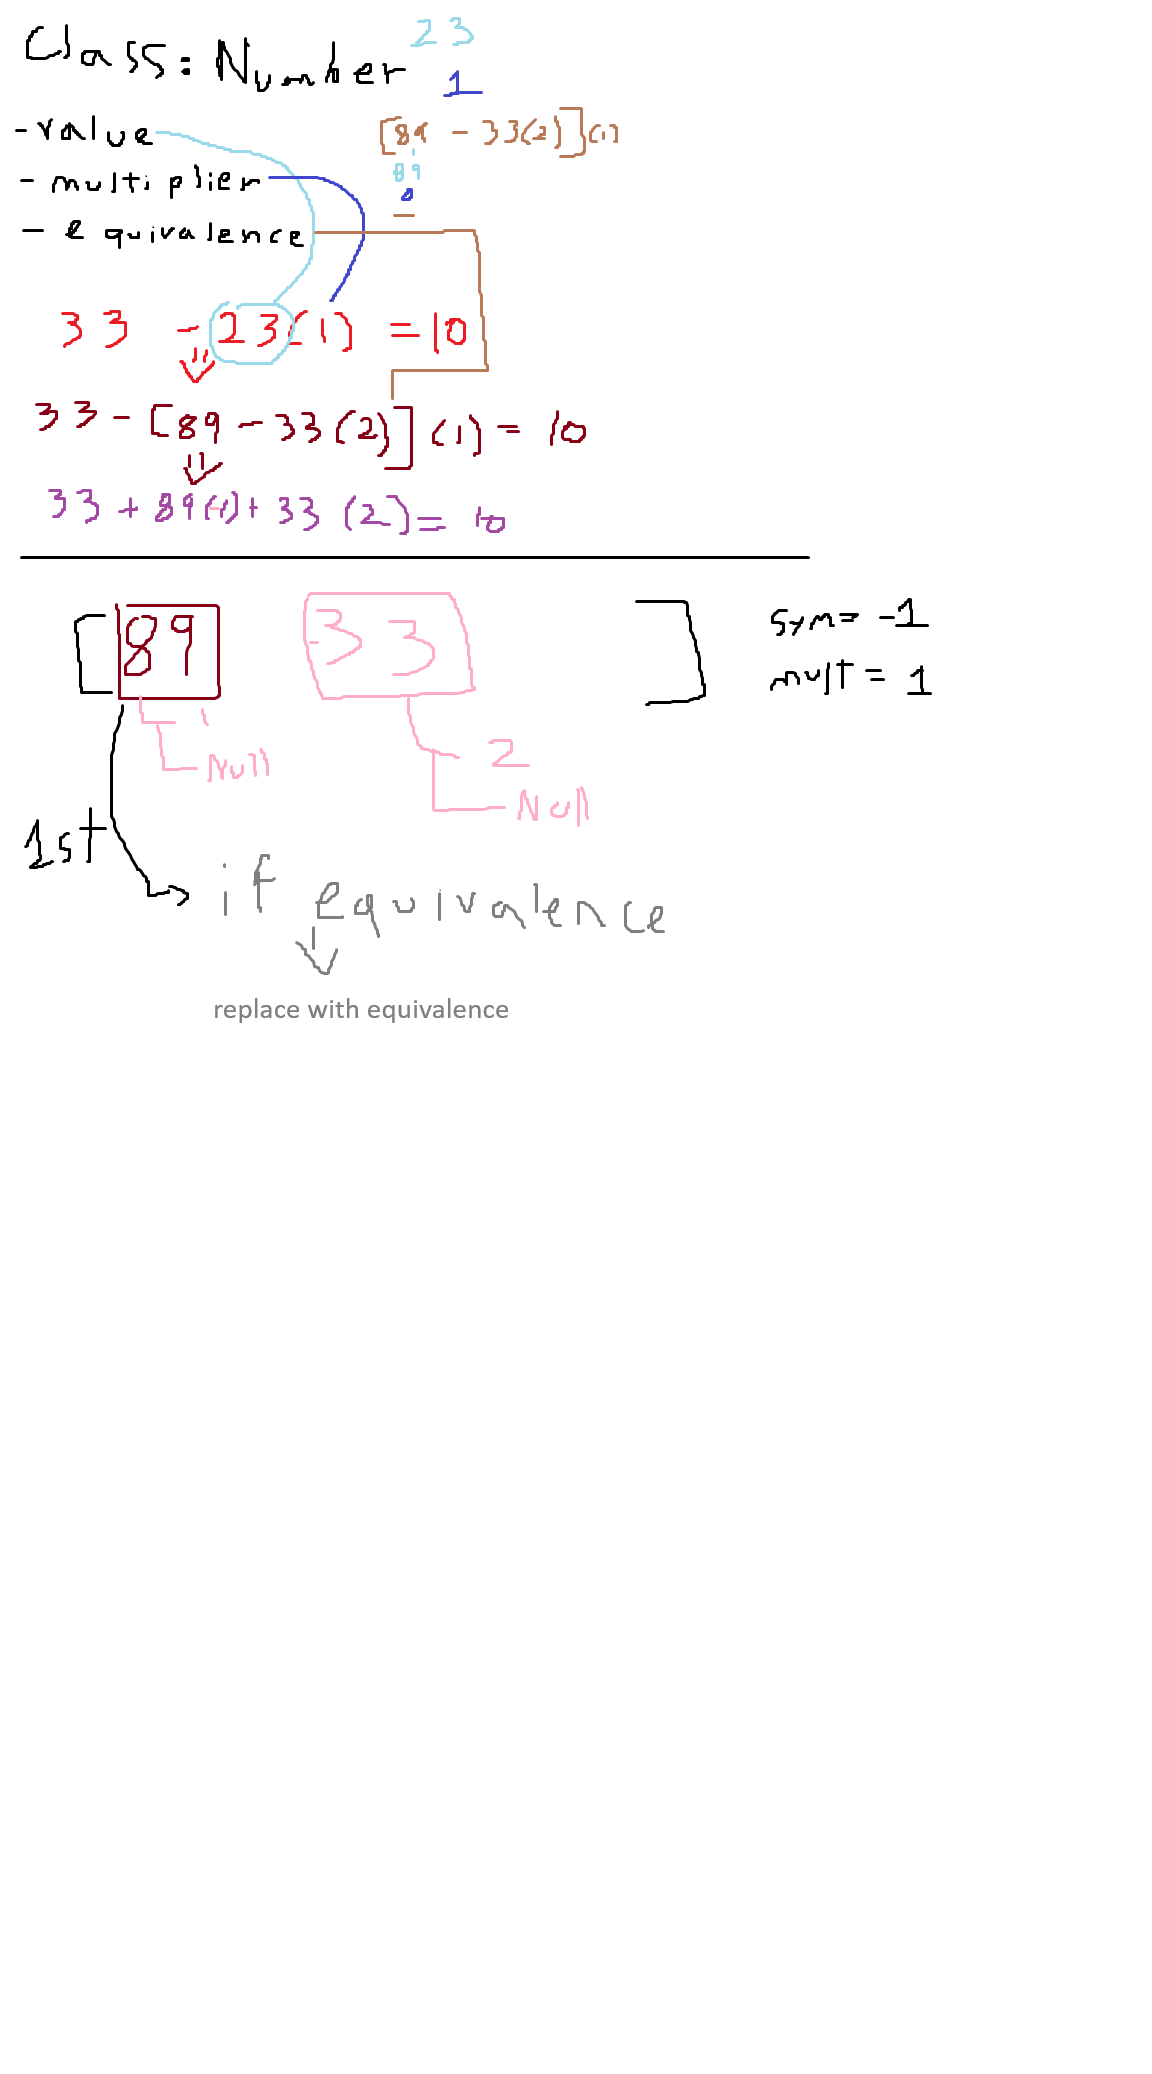 Class: Number 23
1
-value [89 - 33(2)](1)
89
- multiplier 0
- equivalence -
33 - 23(1) = 10
33 - [89 - 33(2)](1) = 10
33 + 89(-1) + 33(2) = 10
[89 -33 ] sym= -1
mult = 1
1
Null 2
Null
1st
if equivalence
replace with equivalence